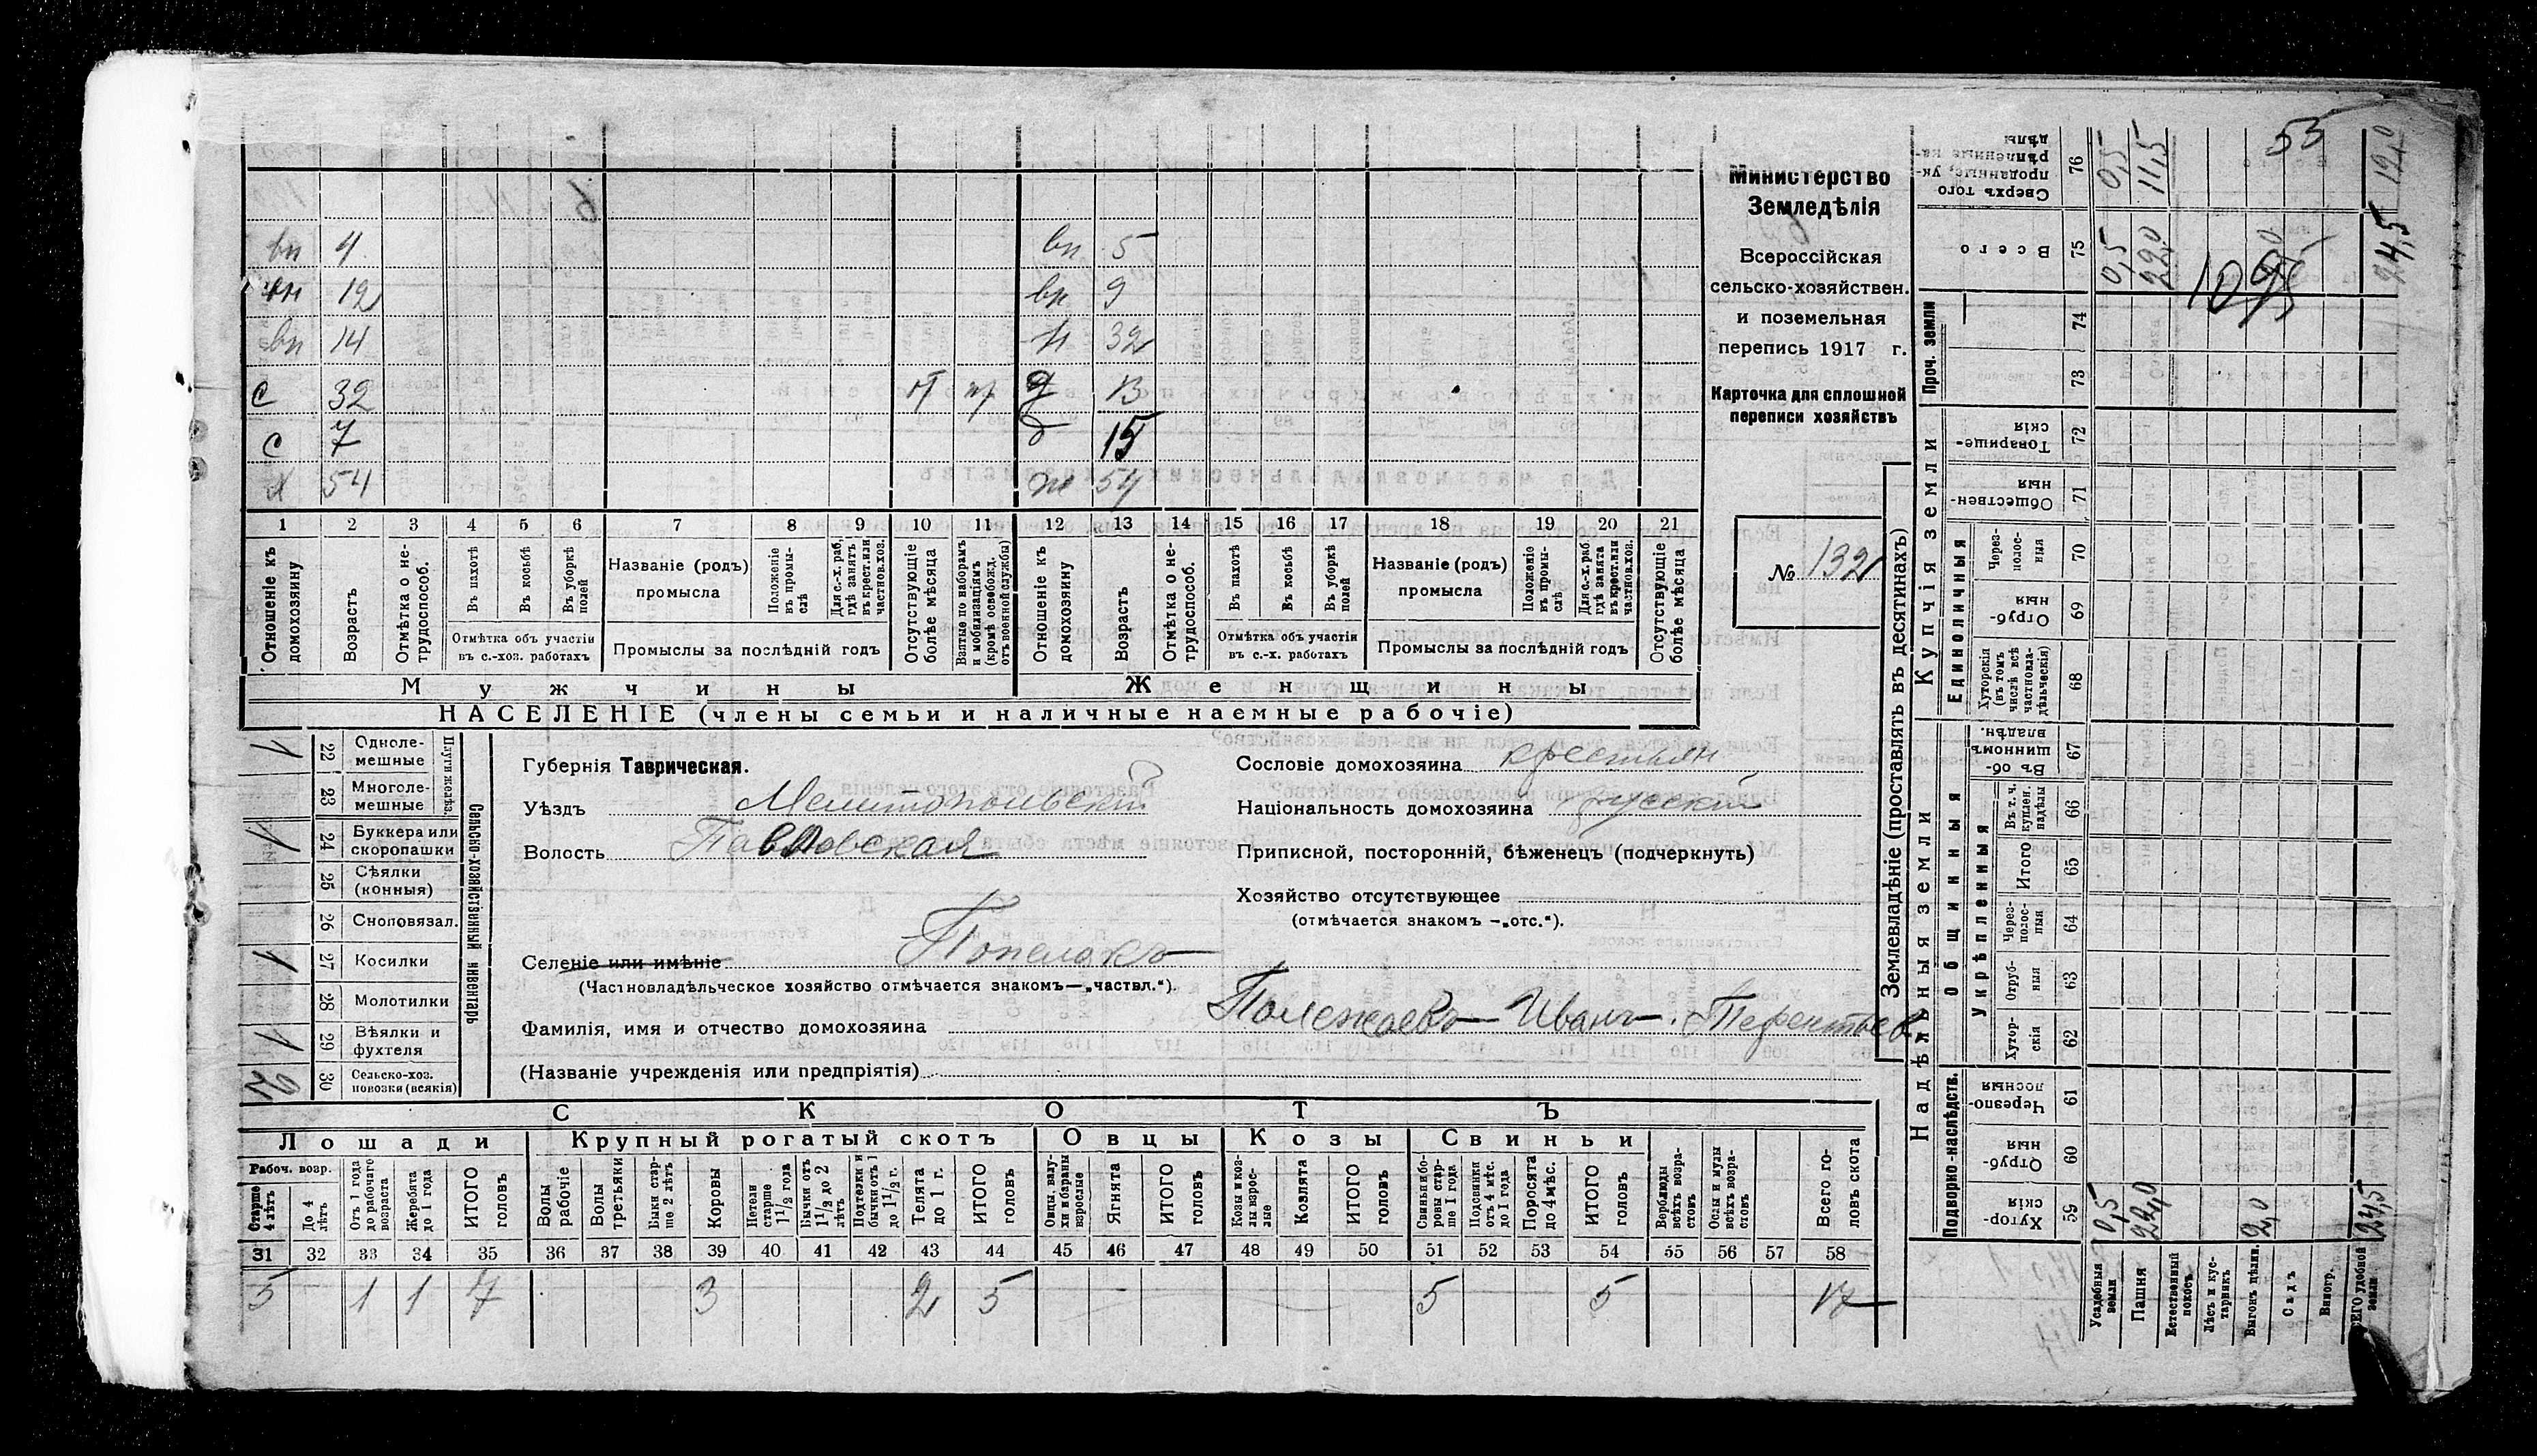 вп 4 вп 5
вп 12 вп 9
вп 14 н 32
с 32 д 13
с 7 д 15
х 54 ж 54
1 2 3 4 5 6 7 8 9 10 11 12 13 14 15 16 17 18 19 20 21
Отношеніе къ домохозяину
Возрастъ
Отмѣтка о нетрудоспособ.
Въ пахотѣ
Въ косьбѣ
Въ уборкѣ полей
Отмѣтка объ участіи въ с.-хоз. работахъ
Названіе (родъ) промысла
Положеніе въ промыслѣ
Для с.-х. раб. гдѣ занятъ въ крест. или частнов. хоз.
Промыслы за послѣдній годъ
Отсутствующіе болѣе мѣсяца
Взятые по наборамъ и мобилизаціямъ (кромѣ освобожд. отъ военной службы)
Отношеніе къ домохозяину
Возрастъ
Отмѣтка о нетрудоспособ.
Въ пахотѣ
Въ косьбѣ
Въ уборкѣ полей
Отмѣтка объ участіи въ с.-х. работахъ
Названіе (родъ) промысла
Положеніе въ промыслѣ
Для с.-х. раб. гдѣ занята въ крест. или частнов. хоз.
Промыслы за послѣдній годъ
Отсутствующіе болѣе мѣсяца
Мужчины Женщины
НАСЕЛЕНІЕ (члены семьи и наличные наемные рабочіе)
Министерство
Земледѣлія
Всероссійская
сельско-хозяйствен.
и поземельная
перепись 1917 г.
Карточка для сплошной
переписи хозяйствъ
№ 132
Сельско-хозяйственный инвентарь
1 22 Однолемешные
23 Многолемешные
1 24 Буккера или скоропашки
25 Сѣялки (конныя)
26 Сноповязал.
1 27 Косилки
28 Молотилки
1 29 Вѣялки и фухтеля
30 Сельско-хоз. повозки (всякія)
Губернія Таврическая.
Уѣздъ Мелитопольскій
Волость Павловская
Селеніе или имѣніе
(Частновладѣльческое хозяйство отмѣчается знакомъ—„частвл.“).
Сословіе домохозяина крестьян
Національность домохозяина русскій
Приписной, посторонній, бѣженецъ (подчеркнуть)
Хозяйство отсутствующее
(отмѣчается знакомъ —„отс.“).
Фамилія, имя и отчество домохозяина Полежаевъ Иванъ
(Названіе учрежденія или предпріятія)
СКОТЪ
Лошади Крупный рогатый скотъ Овцы Козы Свиньи
Рабоч. возр.
Старше 4 лѣтъ
До 4 лѣтъ
Отъ 1 года до рабочаго возраста
Жеребята до 1 года
ИТОГО головъ
Волы рабочіе
Волы третьяки
Быки старше 2 лѣтъ
Коровы
Нетели старше 1½ года
Бычки отъ 1½ до 2 лѣтъ
Подтелки и бычки отъ 1 до 1½ г.
Телята до 1 г.
ИТОГО головъ
Овцы, валухи и бараны взрослые
Ягнята
ИТОГО головъ
Козы и козлы взрослые
Козлята
ИТОГО головъ
Свиньи боровы старше 1 года
Подсвинки отъ 4 мѣс. до 1 года
Поросята до 4 мѣс.
ИТОГО головъ
Верблюды всѣхъ возрастовъ
Ослы и мулы всѣхъ возрастовъ
Всего головъ скота
31 32 33 34 35 36 37 38 39 40 41 42 43 44 45 46 47 48 49 50 51 52 53 54 55 56 57 58
5 1 1 7 3 2 5 5 5 17
Землевладѣніе (проставлять въ десятинахъ)
Надѣльныя земли
Купчія земли
Проч. земли
Подворно-наслѣдств.
Общинныя
Укрѣпленныя
Единоличныя
Сверхъ того проданные укрѣпленные надѣлы 76 0,5 11,5 12,0
Всего 75 0,5 22,0 24,5
74
73
Товарищескія 72
Общественныя 71
Черезполосныя 70
Отрубныя 69
Хуторскія (въ томъ числѣ всѣ частновладѣльческія) 68
Въ общинномъ владѣн. 67
Въ т. ч. куплен. надѣлы 66
Итого 65
Черезполосныя 64
Отрубныя 63
Хуторскія 62
Черезполосныя 61
Отрубныя 60
Хуторскія 59 0,5 22,0 2,0 24,5
Усадебныя земли
Пашня
Естественный покосъ
Лѣсъ и кустарникъ
Выгонъ цѣлин.
Садъ
Виногр.
ВСЕГО удобной земли
55